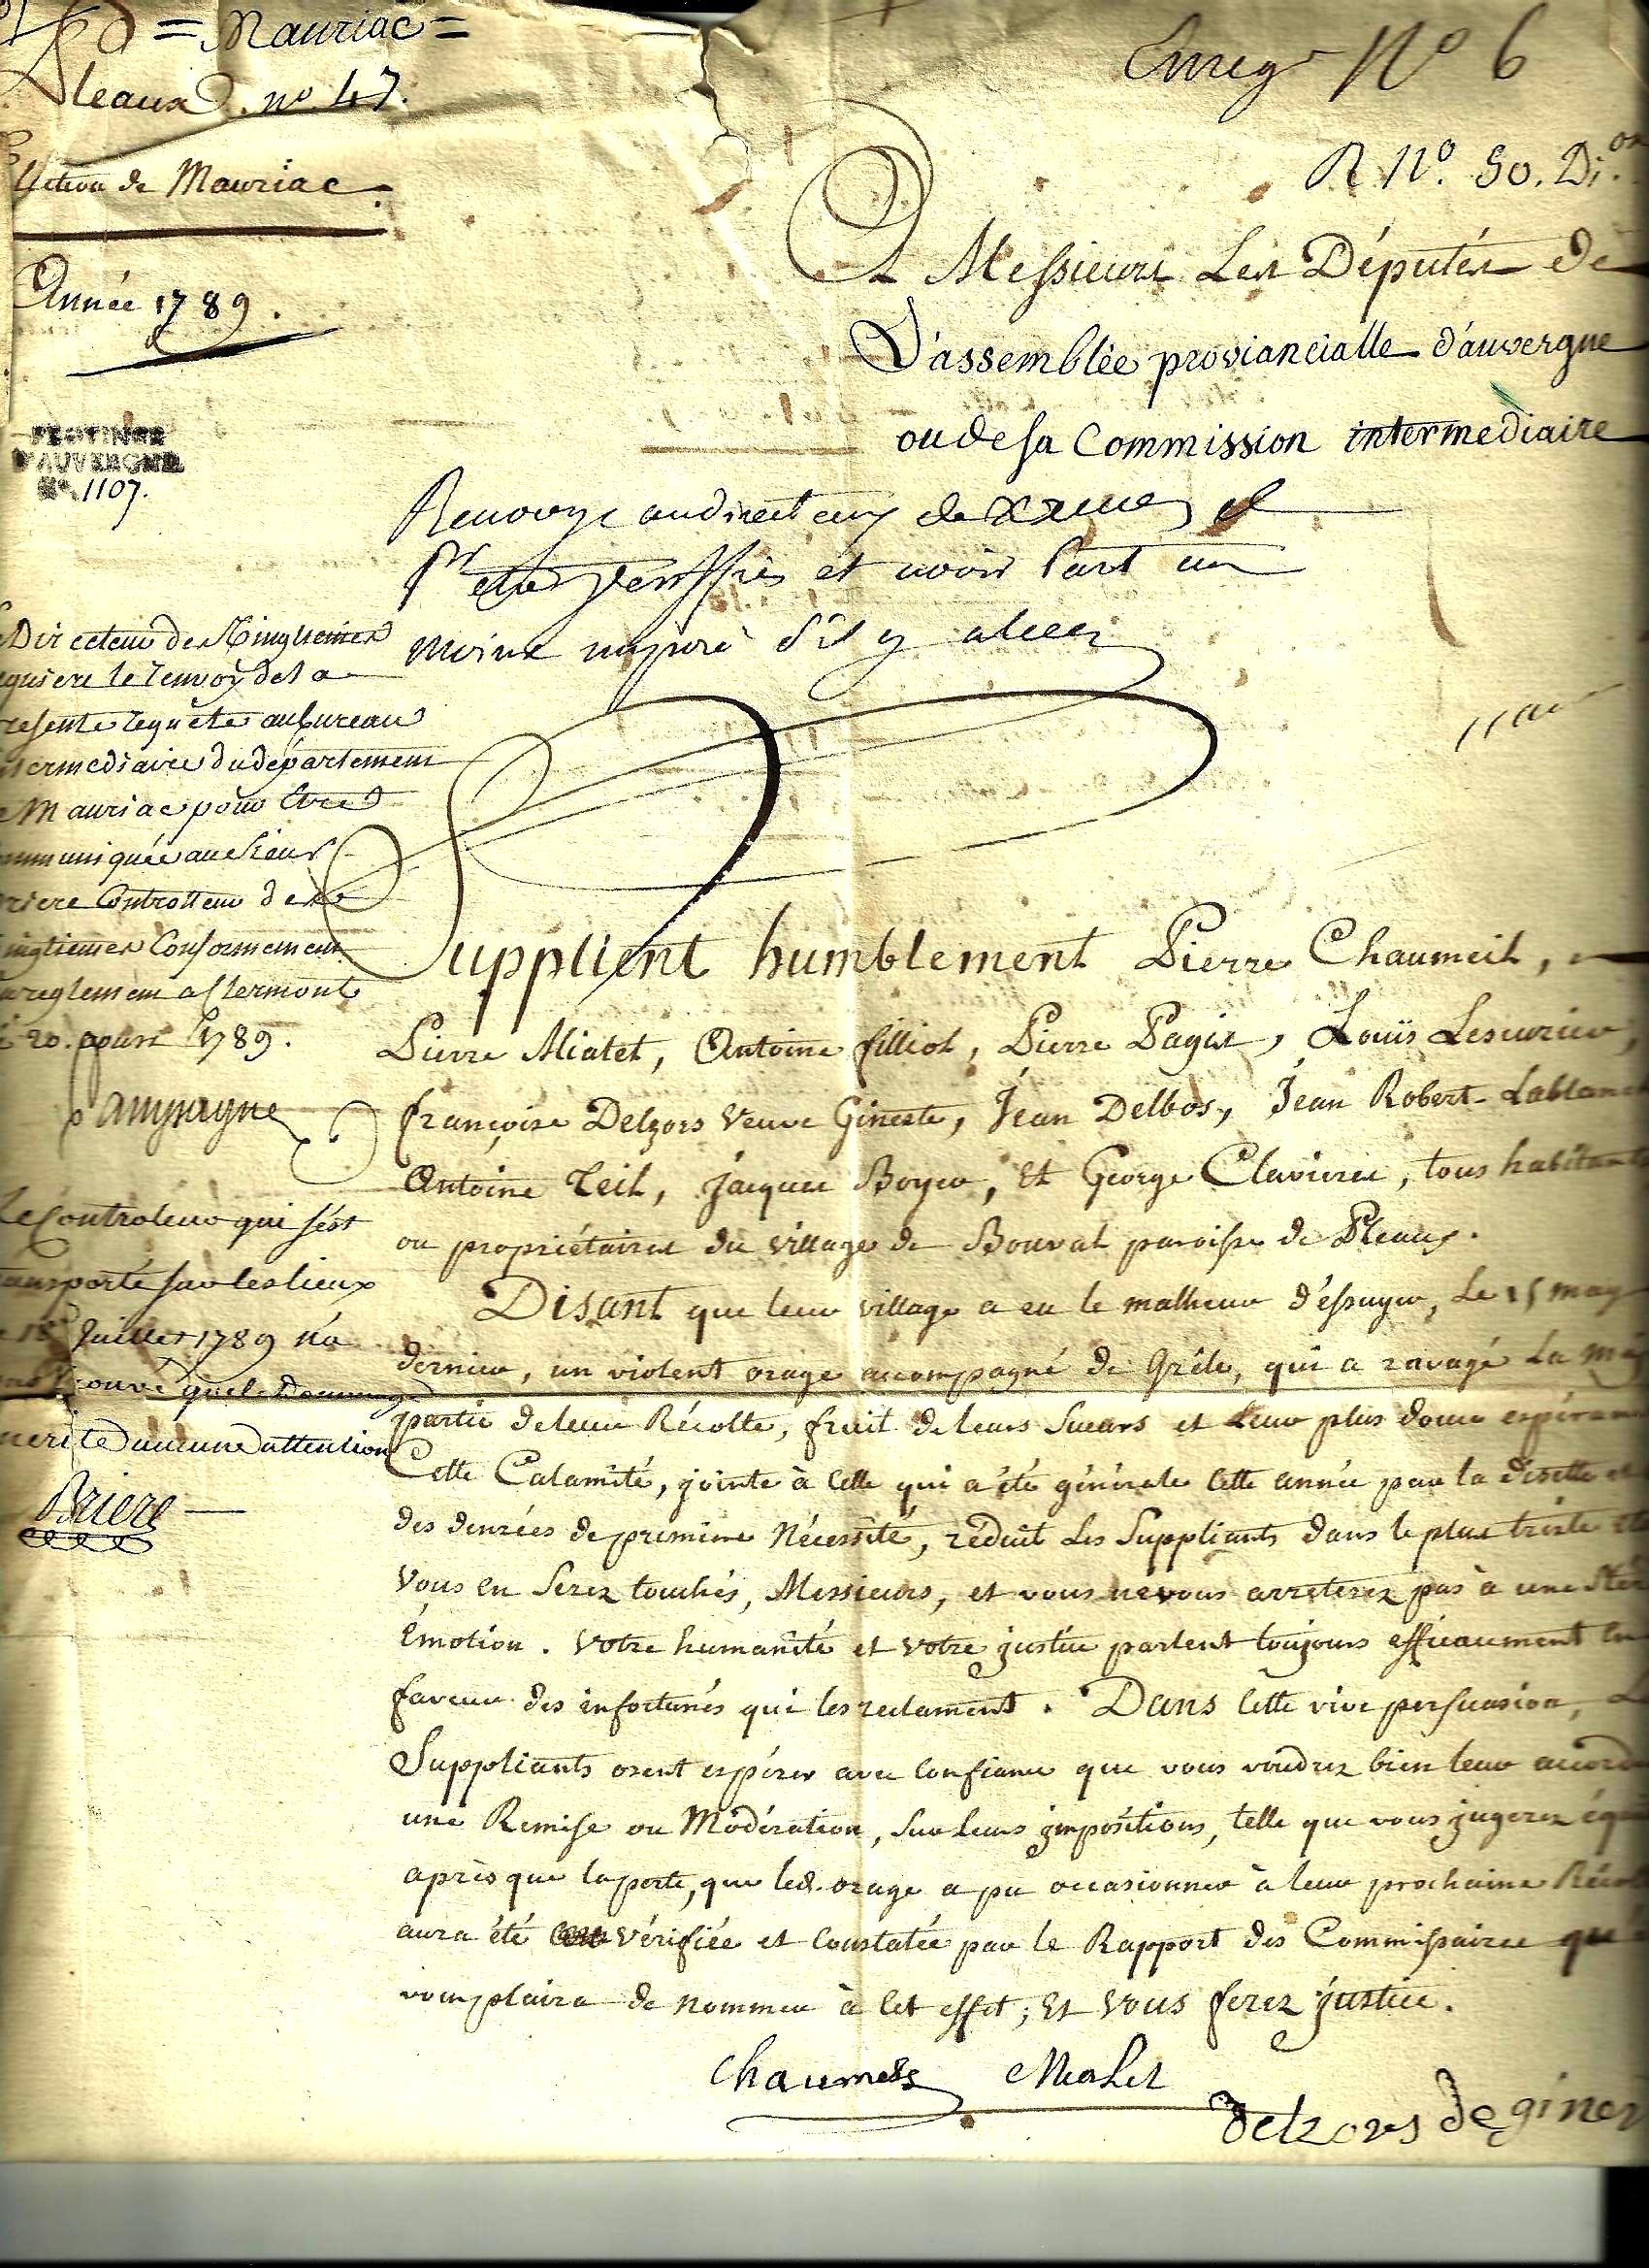 = Mauriac =
Pleaux. n° 47.
Election de Mauriac.
Année 1789.
PROVINCE
D'AUVERGNE
N° 1107.
Enreg N° 6
R N°. 50. Di.on
A Messieurs Les Députés de
L'assemblée proviancialle d'auvergne
ou de sa Commission intermediaire
Renvoyé au directeur des
et avoir
s'il y a lieu
Directeur des Vingtiemes
requiere le renvoy de la
presente requête au bureau
intermediaire du département
de Mauriac pour être
communiquée au sieur
Briere Controlleur des
vingtiemes Conformement
au reglement a Clermont
le 20. 1789.
Le Controleur qui s'est
transporté sur les lieux
Juillet 1789 n'a
pas trouvé que le Dommage
merite aucune attention
Briere
Supplient humblement Pierre Chaumeil,
Pierre Mialet, Antoine filliol, Pierre Pagis, Louis Lescurier,
françoise Delzors Veuve Gineste, Jean Delbos, Jean Robert-Lablanche
Antoine Teil, Jacques Boyer, et George Clavieres, tous habitants
ou propriétaires du village de Bouval paroisse de Pleaux.
Disant que leur village a eu le malheur d'éssuyer, Le 15 may
dernier, un violent orage accompagné de Grêle, qui a ravagé La
partie de leur Récolte, fruit de leurs Sueurs et Leur plus douce espérance
Cette Calamité, jointe à Celle qui a été générale Cette année par la disette
des denrées de premiere Nécessité, réduit Les Suppliants dans le plus triste
Vous en Serez touchés, Messieurs, et vous ne vous arreterez pas à une
Émotion. Votre humanité et Votre justice parlent toujours efficacement en
faveur des infortunés qui les reclament. Dans Cette vive persuasion,
Suppliants osent espérer avec Confiance que vous voudrez bien leur accorder
une Remise ou Modération, sur leurs impositions, telle que vous jugerez
après que la perte, que led. orage a pu occasionner à leur prochaine Récolte
aura été vérifiée et Constatée par le Rapport des Commissaires qu'il
vous plaira de nommer à Cet effet; Et Vous ferez justice.
Chaumeil Mialet
delzors de ginest